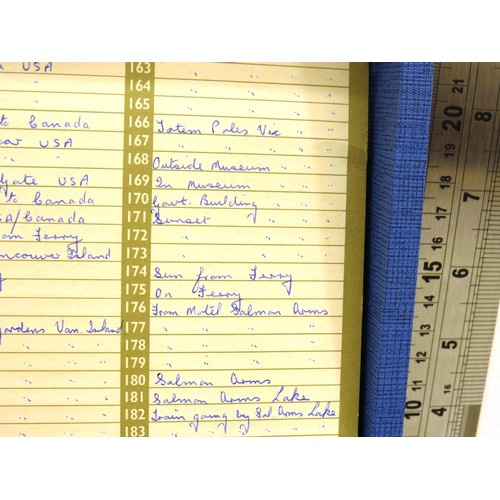 USA 163 " " "
" 164 " " "
165 " " "
to Canada 166 Totem Poles Vic " "
USA 167 " " " "
" 168 Outside Museum " "
gate USA 169 In Museum " " "
to Canada 170 Govt. Building " " "
USA/Canada 171 Sunset " " "
from Ferry 172 " " "
Vancouver Island 173 " " "
174 Sun from Ferry
175 On Ferry
176 From Motel Salmon Arms
gardens Van. Island 177 " " " "
" " " 178 " " " "
" " " 179 " " " "
" " " 180 Salmon Arms
" " " 181 Salmon Arms Lake
" " " 182 Train going by Sal Arms Lake
" " " 183 " " " " "
21
20
8
7
15
6
5
10
16
4